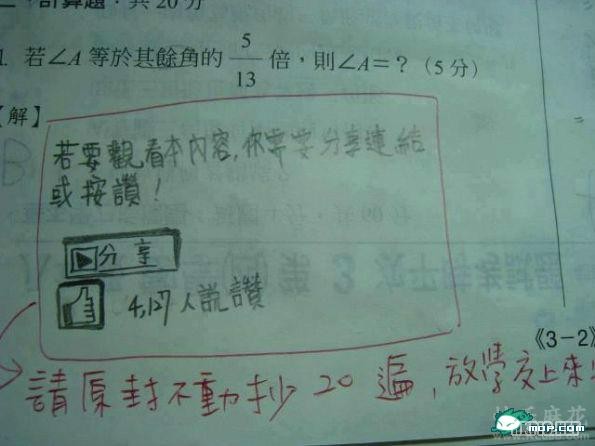 二、計算題：共20分
1. 若∠A 等於其餘角的 5/13 倍，則∠A=？(5分)
【解】
若要觀看本內容，你要要分享連結
或按讚！
分享
4,127人說讚
《3-2》
請原封不動抄20遍，放學交上來
mop.com